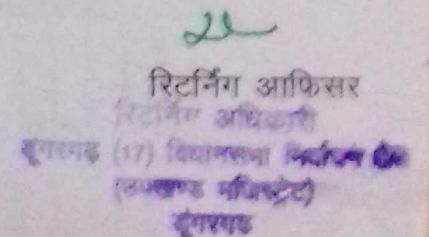 रिटर्निंग आफिसर
रिटर्निंग अधिकारी
डूंगरगढ (17) विधानसभा निर्वाचन क्षेत्र
(उपखण्ड मजिस्ट्रेट)
डूंगरगढ